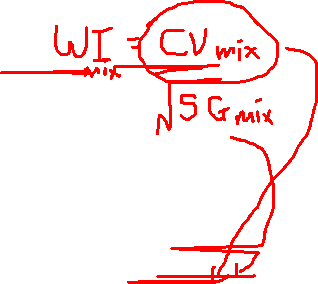 WI mix = CV mix
√SG mix